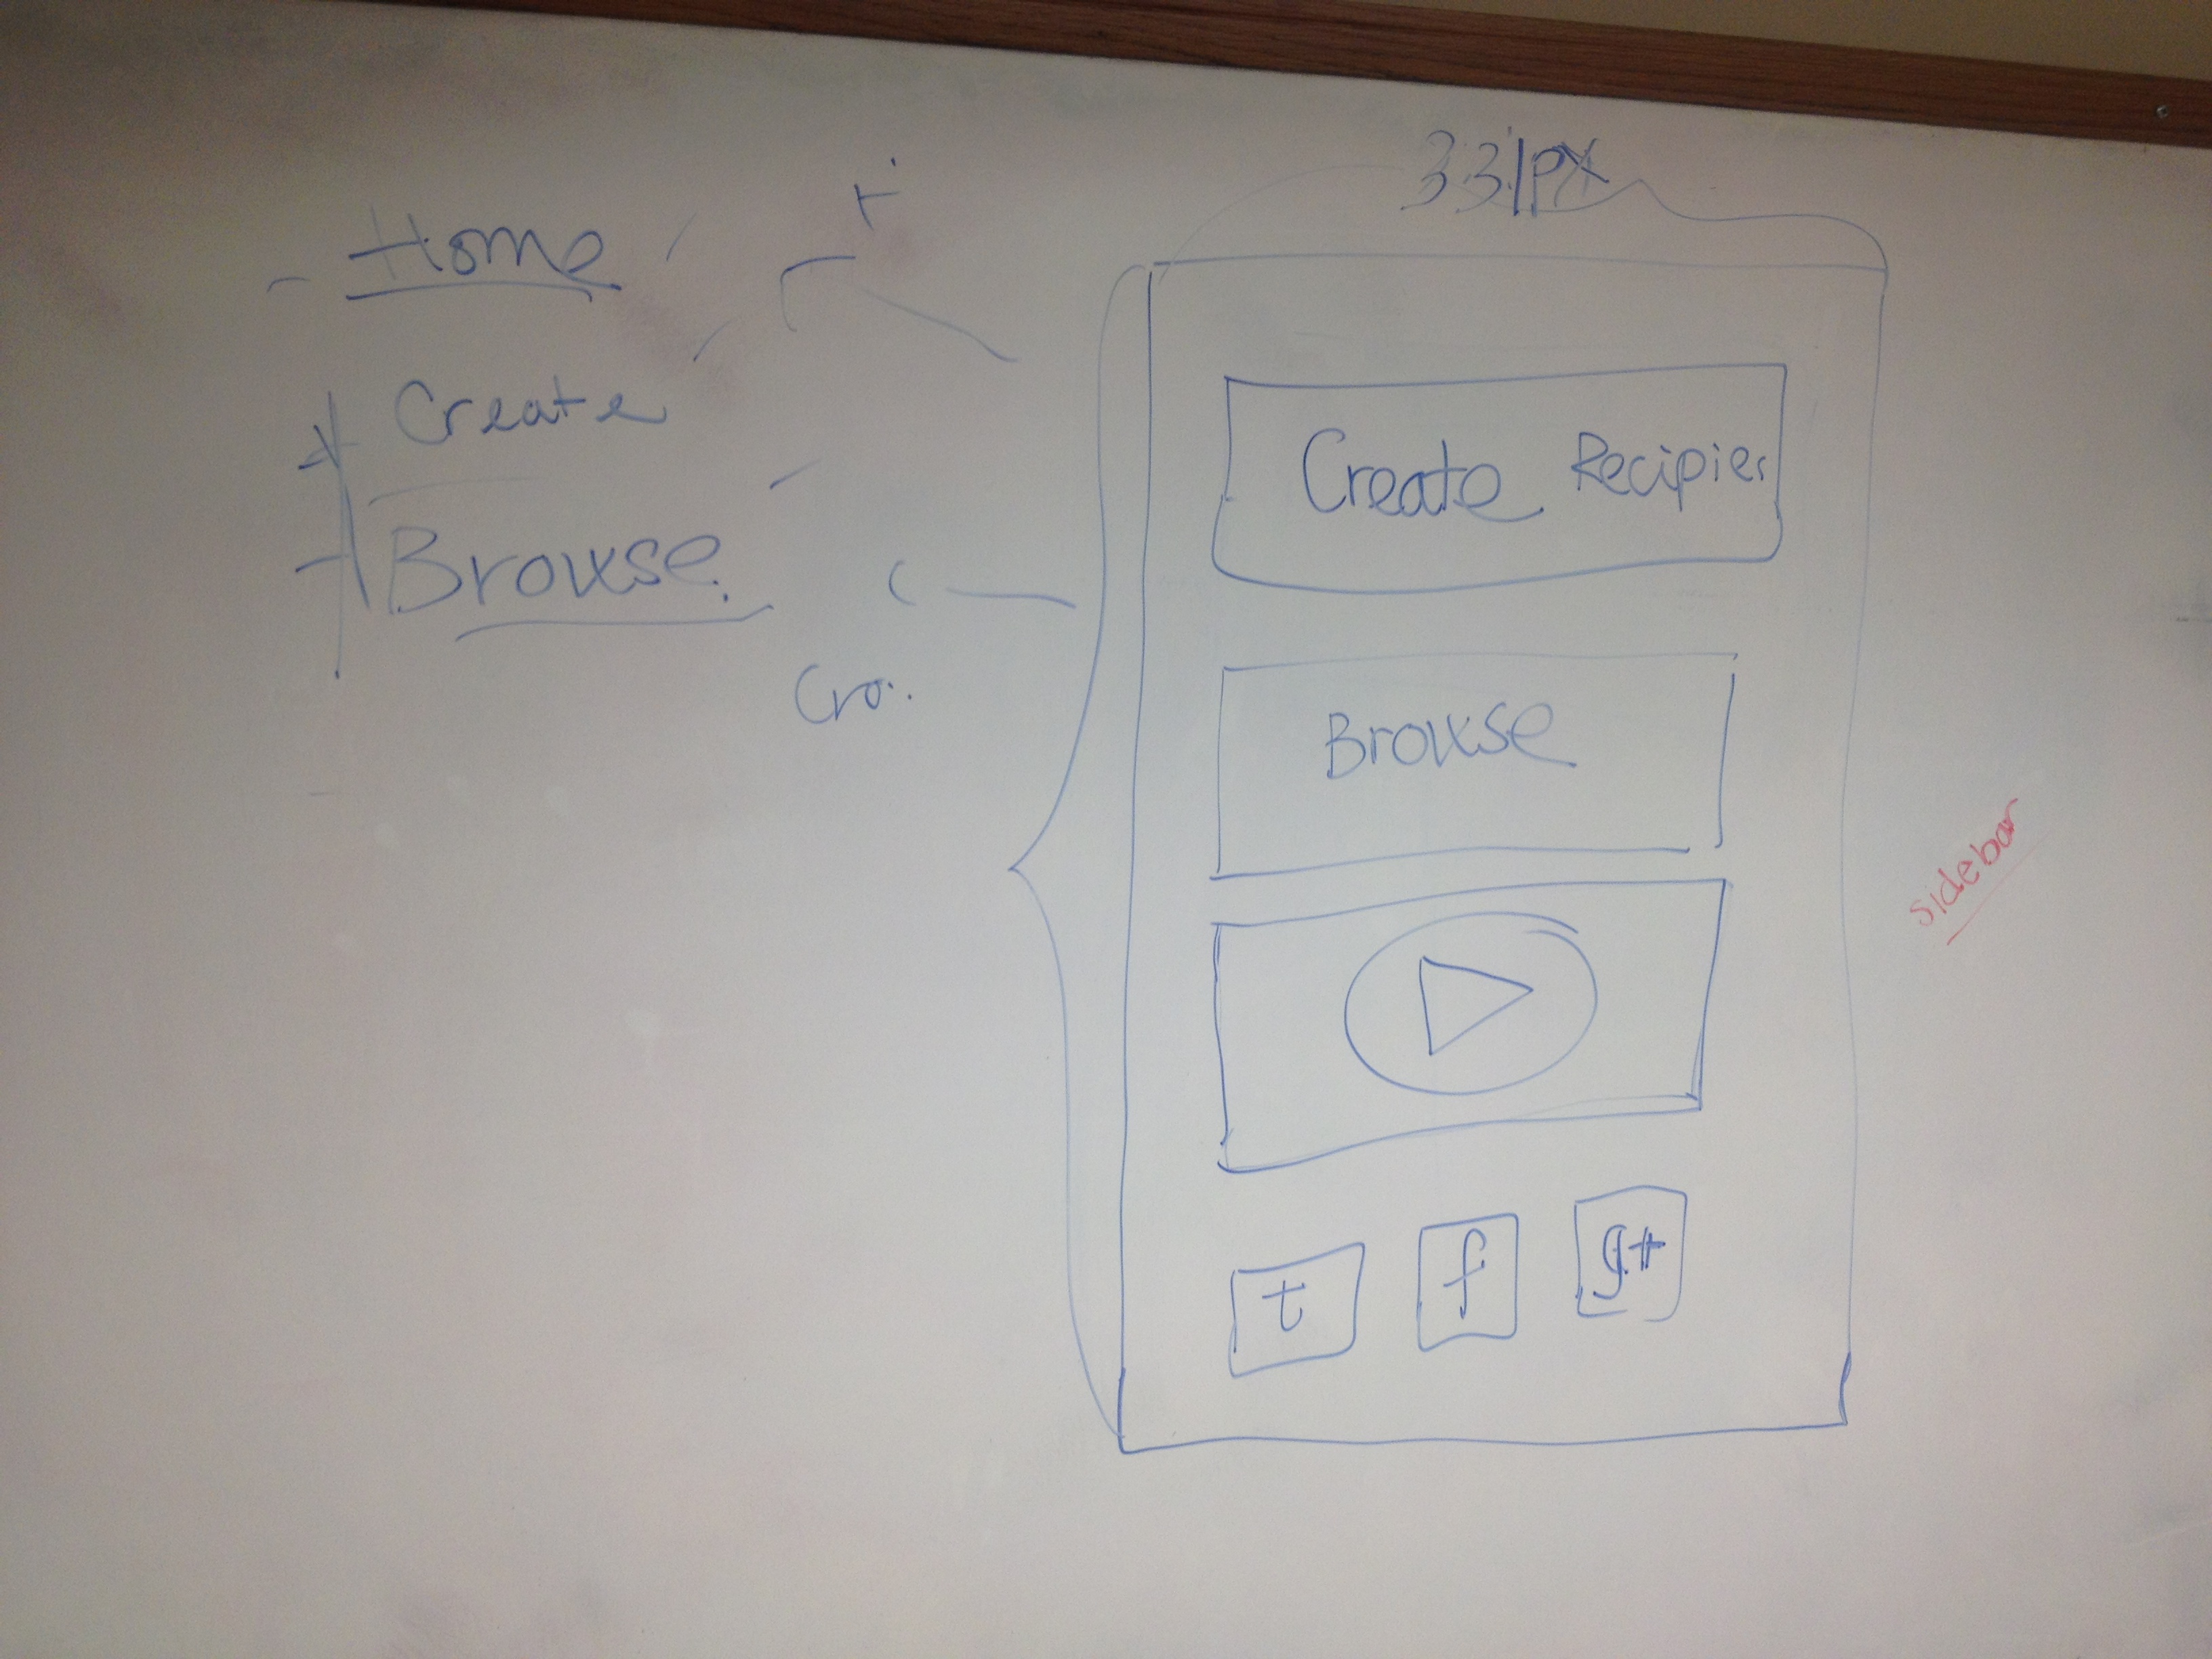 Home
Create
Browse
Cro..
331px
Create Recipies
Browse
t f g+
sidebar